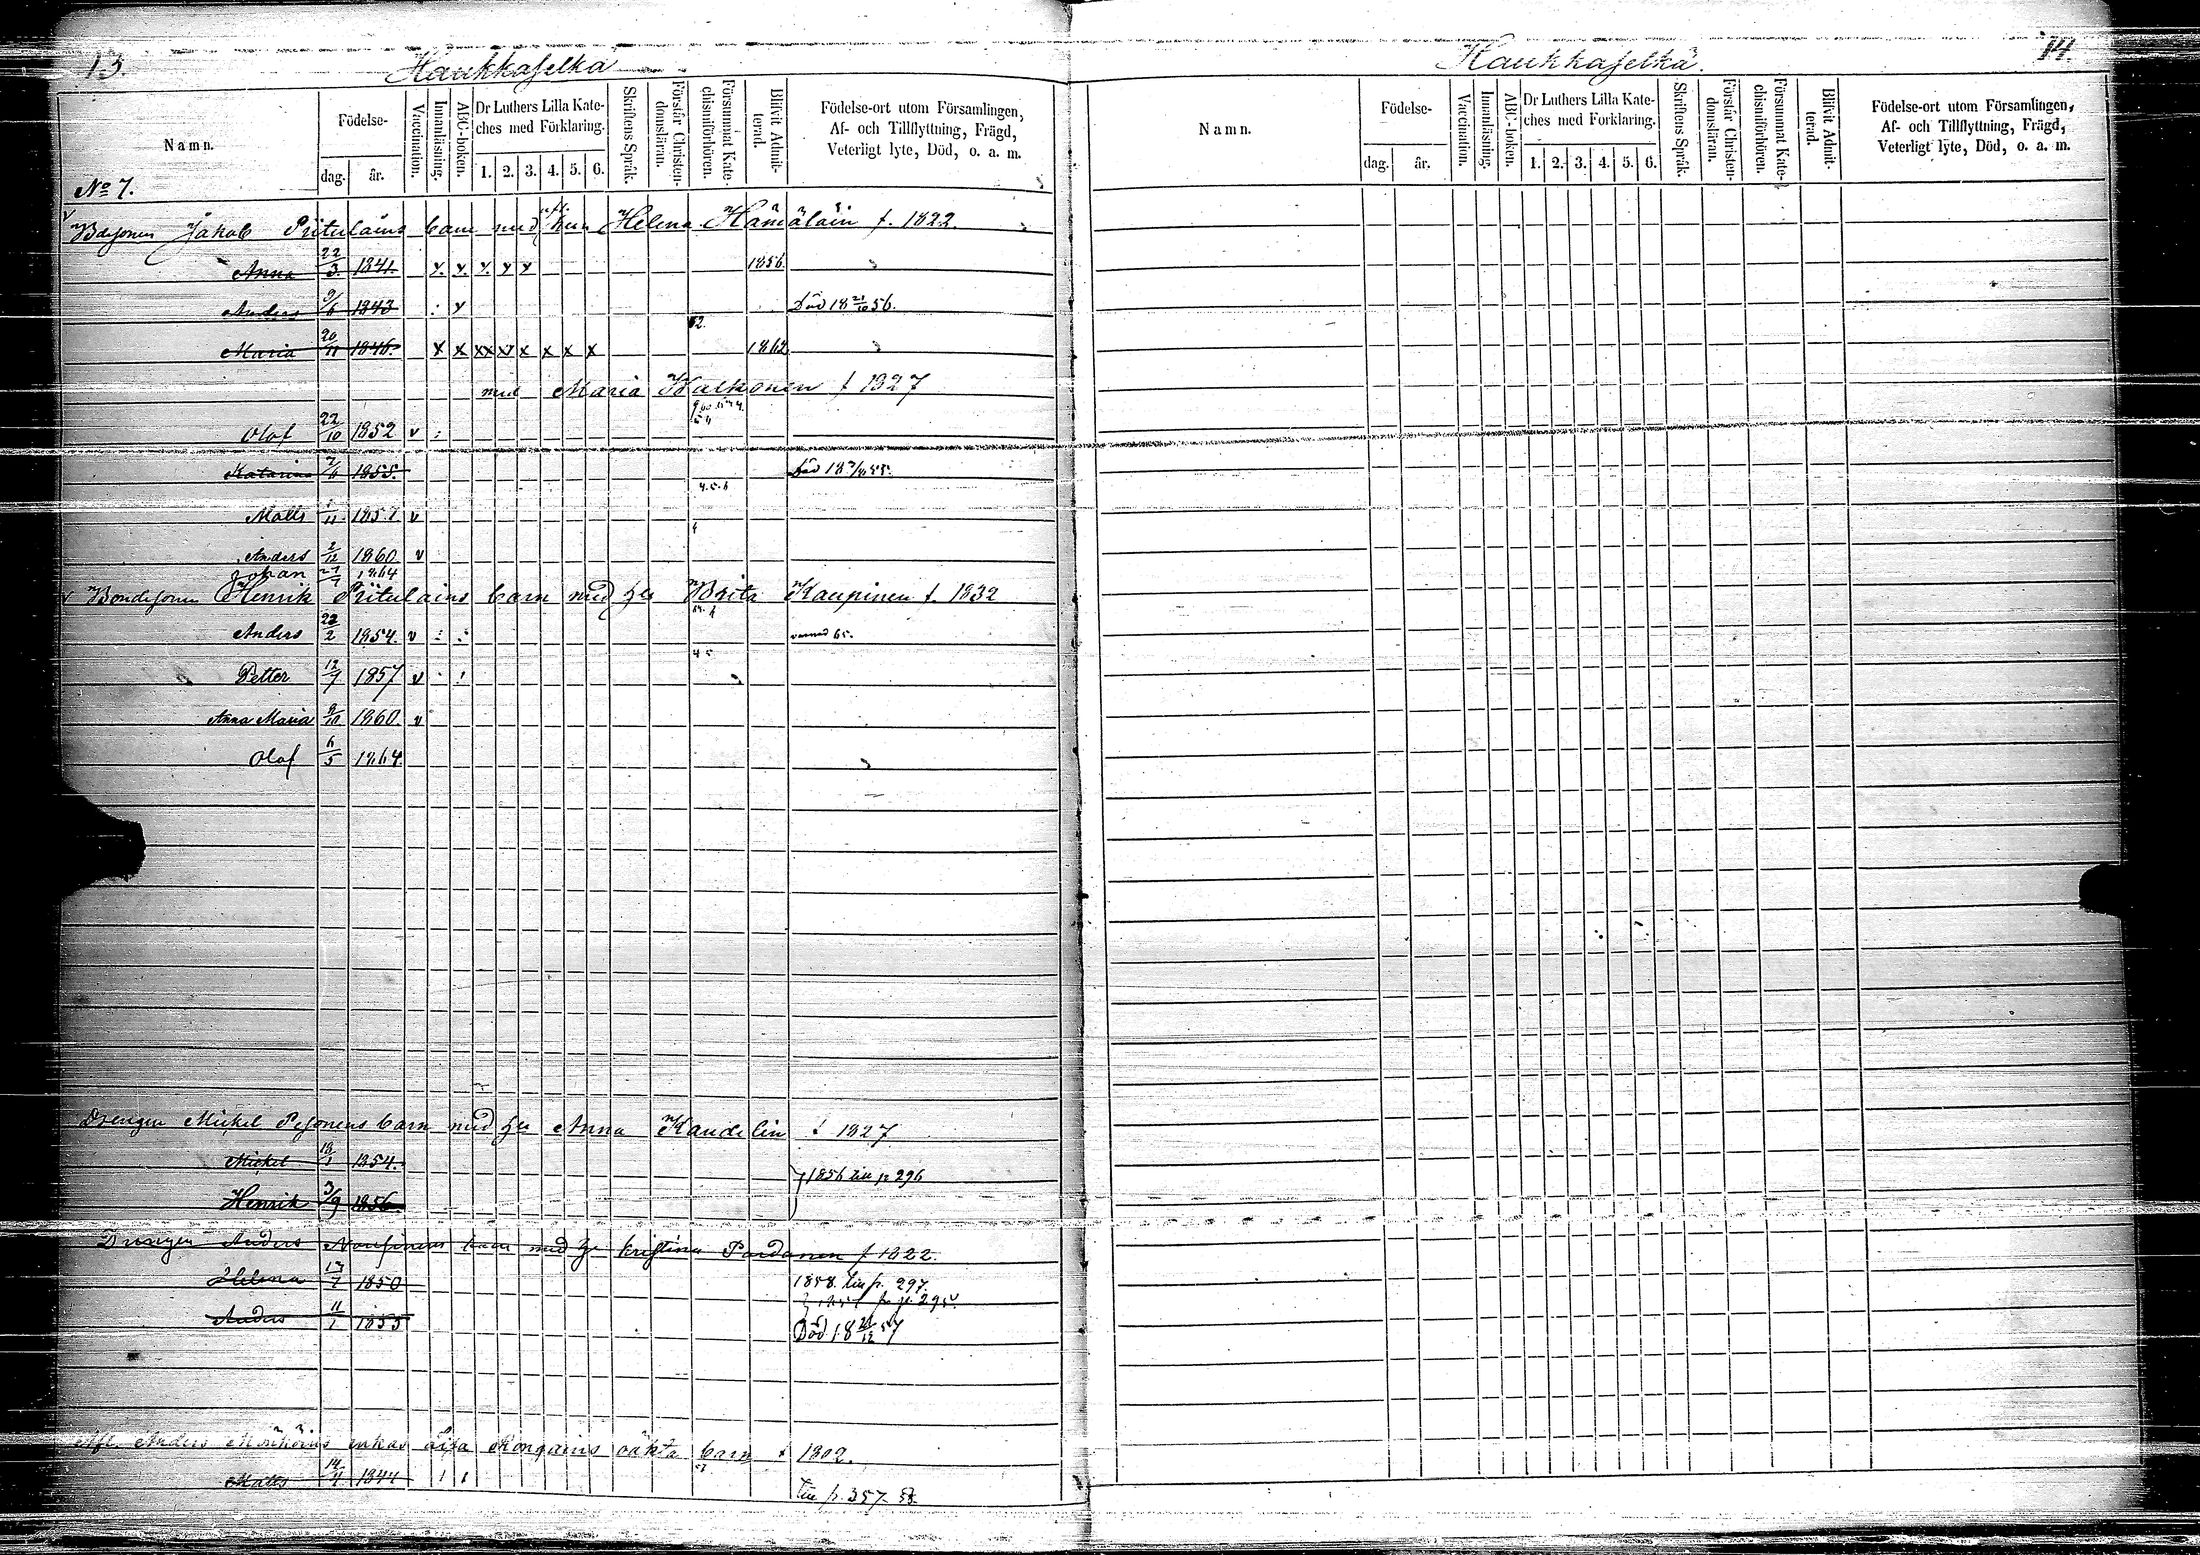 13.
Haukkaselkä
Namn.
Födelse-
dag.
år.
Vaccination.
Innanläsning.
ABC-boken.
Dr Luthers Lilla Kate-
ches med Förklaring.
1. 2. 3. 4. 5. 6.
Skriftens Språk.
Förstår Christen-
domsläran.
Försummat Kate-
chismiförhören.
Blifvit Admit-
terad.
Födelse-ort utom Församlingen,
Af- och Tillflyttning, Frägd,
Veterligt lyte, Död, o. a. m.
No 7.
Bdesonen Jakob Piitulains barn med afl. hu Helena Hämäläin f. 1822.
Anna 22/3 1841. 1856.
Anders 9/6 1843 Död 18 21/10 56.
62.
Maria 20/11 1846. 1862
med Maria Kalkonen f 1827
Olof 22/10 1852 v
Katarina 1855.
4.5.6
Matts 1857 v
Anders 2/12 1860 v
Johan 1864
Bondesonen Henrik Piitulains barn med hu Brita Kaupinen f. 1832
Anders 22/2 1854. v 65.
4 5
Petter 12/7 1857 v
Anna Maria 9/10 1860 v
Olof 6/5 1864
Drengen Mickel Pesonens barn med hu Anna Kandelin f 1827
Mickel 18/1 1854.
1856 till p 296
Henrik 3/9 1856
Drengen Anders Nousiainens barn med hu Kristina Pardanen f 1822.
Helena 13/7 1850 1858. till p. 297
p. 295.
Anders 11/1 1855 Död 18 21/12 57
Afl. Anders enkas oäkta barn f 1802.
Matts 14/4 1844
till p. 357.
14.
Haukkaselkä.
Namn.
Födelse-
dag.
år.
Vaccination.
Innanläsning.
ABC-boken.
Dr Luthers Lilla Kate-
ches med Förklaring.
1. 2. 3. 4. 5. 6.
Skriftens Språk.
Förstår Christen-
domsläran.
Försummat Kate-
chismiförhören.
Blifvit Admit-
terad.
Födelse-ort utom Församlingen,
Af- och Tillflyttning, Frägd,
Veterligt lyte, Död, o. a. m.